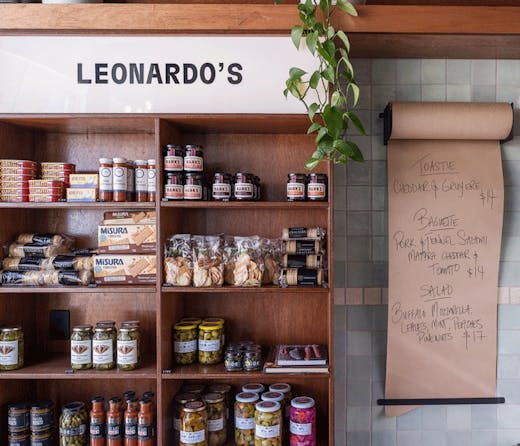 LEONARDO'S
TOASTIE
CHEDDAR & GRUYERE
$14
BAGUETTE
PORK & FENNEL SALAMI
CHEDDAR &
TOMATO $14
SALAD
BUFFALO MOZZARELLA
LEAVES, MINT, PEACHES
PINENUTS $17
HANK'S
MISURA
MISURA